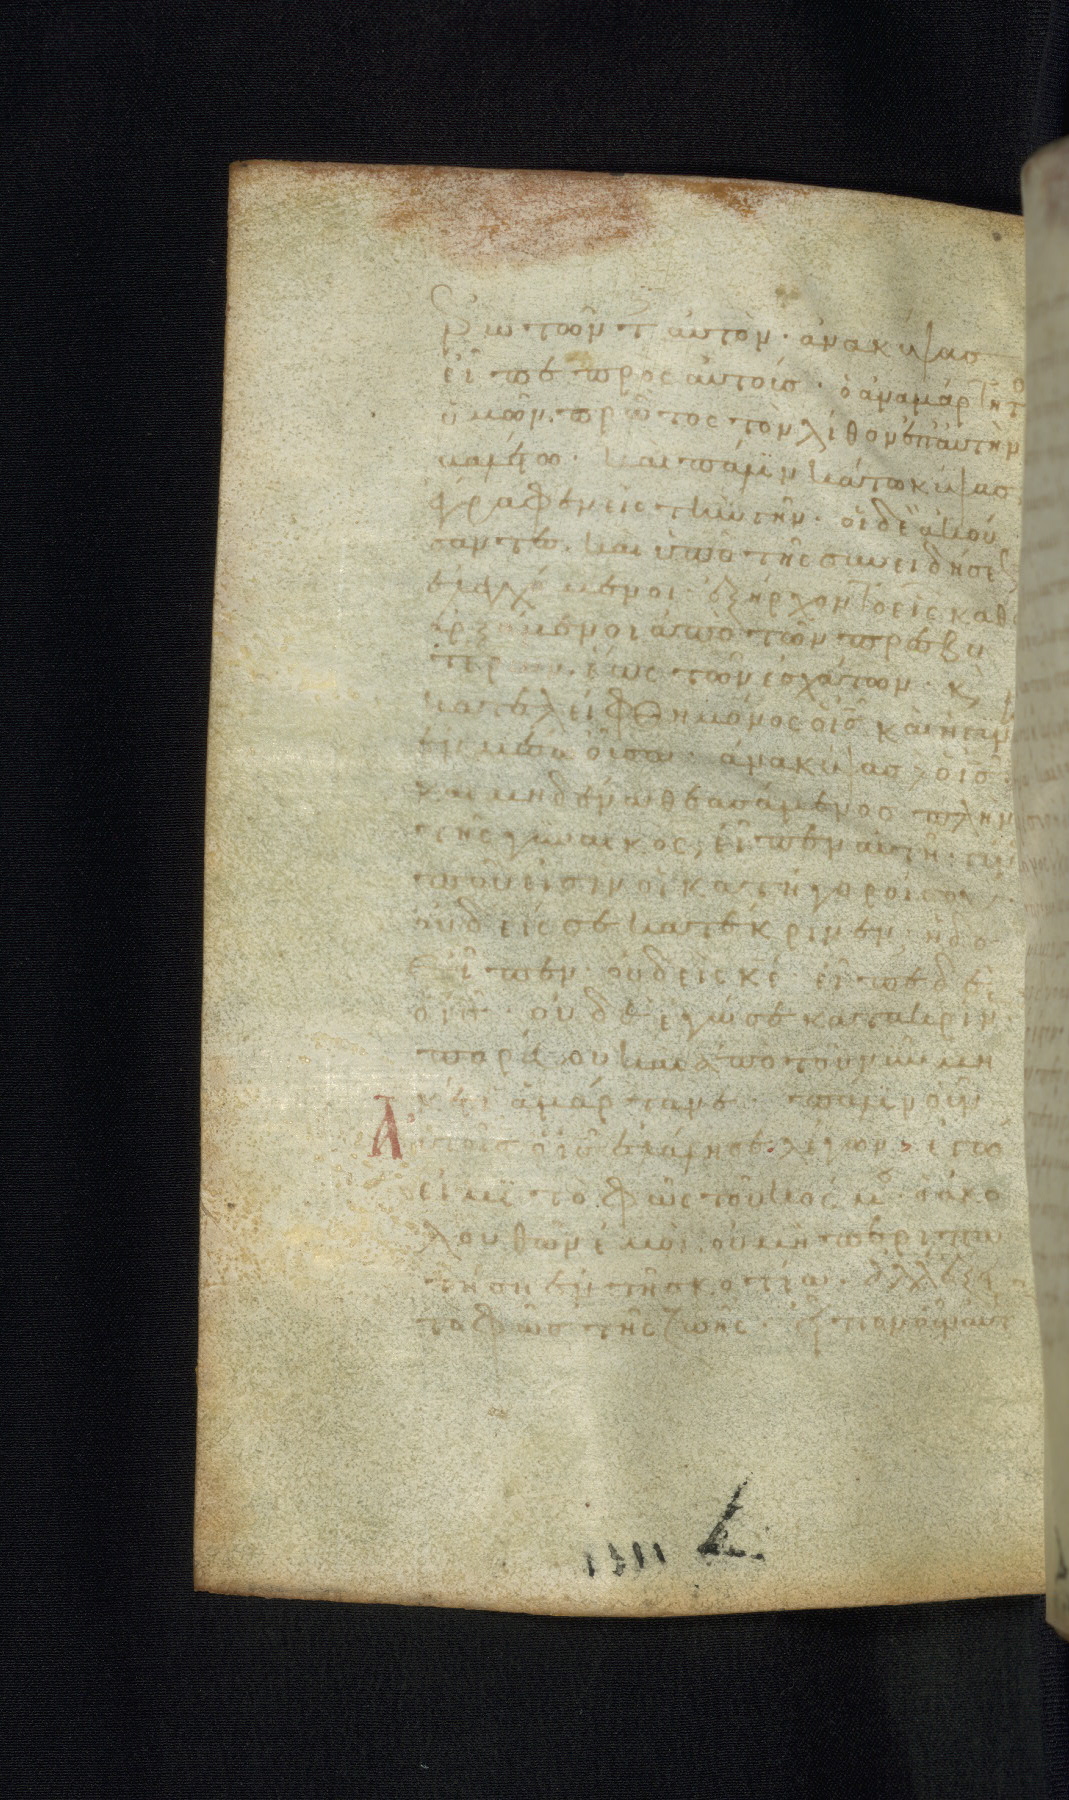 ρωτῶντ αὐτὸν · ἀνακύψασ
εἶπε πρὸς αὐτοίσ · ὁ ἀναμάρτητ
ὑμῶν. πρῶτος τὸν λίθον ἐπ αὐτὴν
καὶ πάλιν κάτω κύψασ
ἔγραφεν εἰς τ γῆν · οἱ δὲ ἀκού
σαντεσ. καὶ ὑπὸ τῆς συνειδήσε
ἐλεγχόμενοι · ἐξήρχοντο εἷς καθ
ἀρξάμενοι ἀπὸ τῶν πρεσβυ
τέρων. ἕως τῶν ἐσχάτων · κ
κατελείφθη μόνος ὁ ις καὶ ἡ γυν
ἐν μέσω οὖσα · ἀνακύψασ ὁ ισ
καὶ μηδένα θεασάμενοσ πλην
τῆς γυναικος, εἶπεν αὐτῆ·
ποῦ εἰσιν οἱ κατήγοροί σου
οὐδείς σε κατέκρινεν · ἡ δὲ
εἶπεν · οὐδεὶς κε · εἶπε δὲ
ὁ ις · οὐδὲ ἐγώ σε κατακρίν
πορεύου καὶ ἀπὸ τοῦ νῦν μη
κέτι ἁμάρτανε · πάλιν οὖν
αὐτοῖσ ὁ ις ἐλάλησε λέγων, ἐγώ
εἰμι τὸ φῶς τοῦ κόσμ · ὁ ἀκο
λουθῶν ἐμοὶ. οὐ μὴ περιπα
τήση ἐν τῆ σκοτία · ἀλλ ἕξει
τὸ φῶσ τῆς ζωῆς · εἶπον οὖν αὐτ